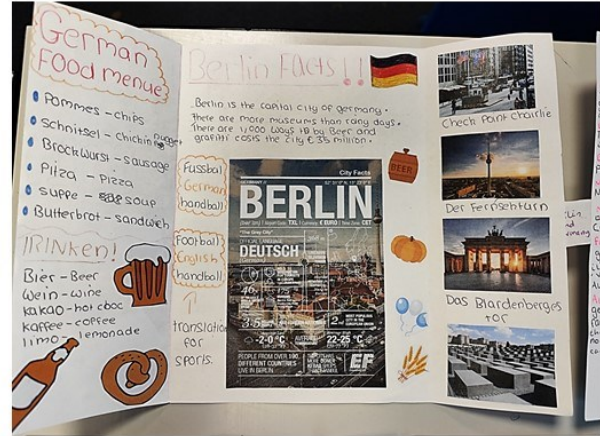 German
Food menue
Pommes - chips
Schnitsel - chickin nugget
Brockwurst - sausage
Pitza - Pizza
suppe - soup
Butterbrot - sandwich
TRINKen!
Bier - Beer
wein - wine
kakao - hot choc
kaffee - coffee
limo - lemonade
Berlin Facts!!
Berlin is the capital city of germany.
There are more museums than rany days.
There are 1,000 ways to by Beer and
grafiti costs the city € 35 million.
Fussball
German
handball
Football
English
handball
translation
for
sports.
City Facts
BERLIN
"The Grey City"
OFFICIAL LANGUAGE
DEUTSCH
(German)
-2-0 °C
22-25 °C
PEOPLE FROM OVER 190
DIFFERENT COUNTRIES
LIVE IN BERLIN
EF
BEER
Check Point charlie
Der Fernsehturn
Das Blardenberges
tor